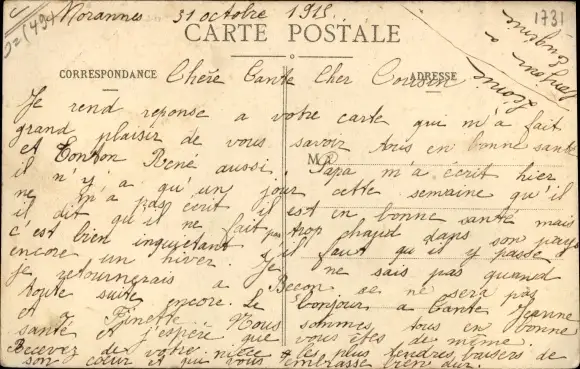 Morannes 31 octobre 1915
1731
CARTE POSTALE
CORRESPONDANCE
ADRESSE
Chère Tante Cher Cousin
Je rend reponse a votre carte qui m'a fait
grand plaisir de vous savoir tous en bonne santé
et Tonton René aussi. Papa m'a écrit hier
il n'y a qu'un jour cette semaine qu'il
ne m'a pas écrit il est en bonne santé mais
il dit qu'il ne fait pas trop chaud dans son pays
c'est bien inquiétant s'il faut qu'il y passe
encore un hiver. Je ne sais pas quand
je retournerais a Becon se ne sera pas
toute suite encore. Le bonjour a Tante Jeanne
et Ginette Nous sommes tous en bonne
santé et j'espére que vous êtes de même.
Recevez de votre nièce les plus tendres baisers de
son cœur et qui vous embrasse bien dur.
M
Eugenie